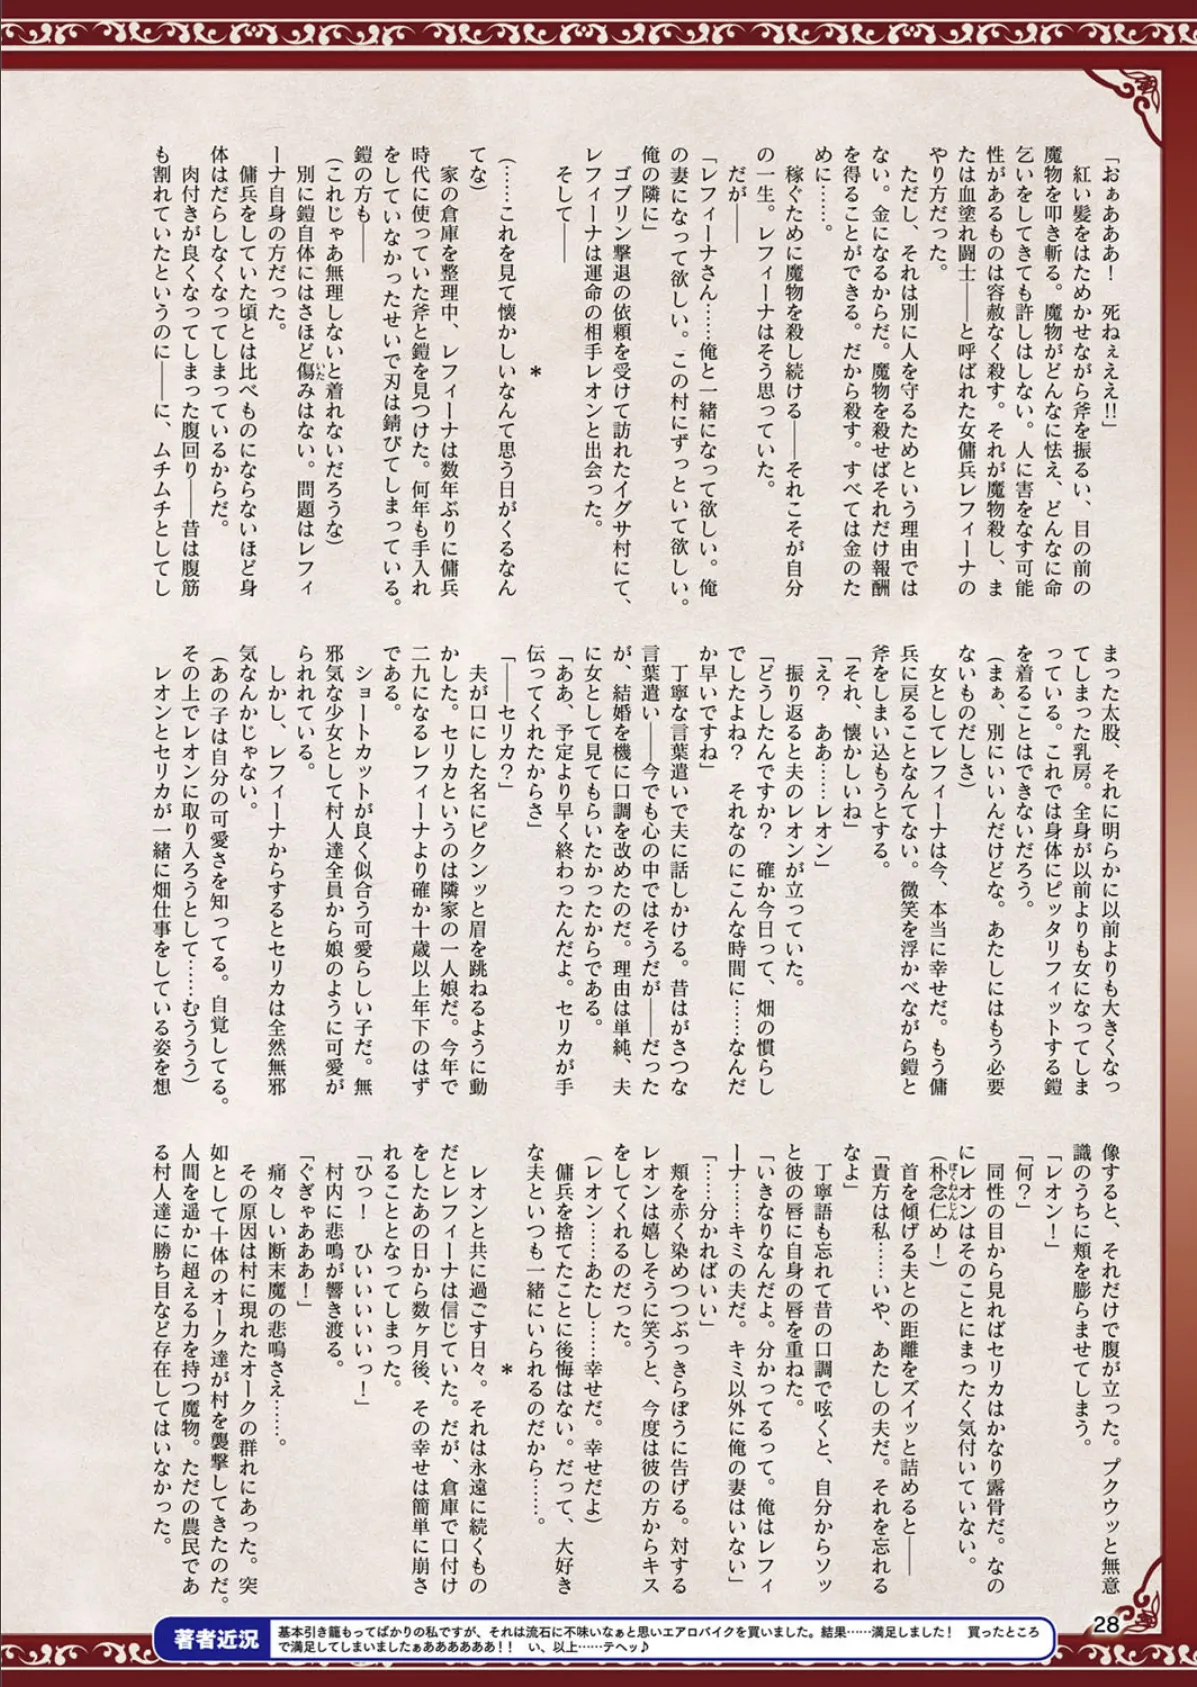 「おぁあああ！　死ねぇええ!!」
　紅い髪をはためかせながら斧を振るい、目の前の
魔物を叩き斬る。魔物がどんなに怯え、どんなに命
乞いをしてきても許しはしない。人に害をなす可能
性があるものは容赦なく殺す。それが魔物殺し、ま
たは血塗れ闘士――と呼ばれた女傭兵レフィーナの
やり方だった。
　ただし、それは別に人を守るためという理由では
ない。金になるからだ。魔物を殺せばそれだけ報酬
を得ることができる。だから殺す。すべては金のた
めに……。
　稼ぐために魔物を殺し続ける――それこそが自分
の一生。レフィーナはそう思っていた。
　だが――
「レフィーナさん……俺と一緒になって欲しい。俺
の妻になって欲しい。この村にずっといて欲しい。
俺の隣に」
　ゴブリン撃退の依頼を受けて訪れたイグサ村にて、
レフィーナは運命の相手レオンと出会った。
　そして――
＊
（……これを見て懐かしいなんて思う日がくるなん
てな）
　家の倉庫を整理中、レフィーナは数年ぶりに傭兵
時代に使っていた斧と鎧を見つけた。何年も手入れ
をしていなかったせいで刃は錆びてしまっている。
鎧の方も――
（これじゃあ無理しないと着れないだろうな）
　別に鎧自体にはさほど傷みはない。問題はレフィ
いた
ーナ自身の方だった。
　傭兵をしていた頃とは比べものにならないほど身
体はだらしなくなってしまっているからだ。
　肉付きが良くなってしまった腹回り――昔は腹筋
も割れていたというのに――に、ムチムチとしてし
まった太股、それに明らかに以前よりも大きくなっ
てしまった乳房。全身が以前よりも女になってしま
っている。これでは身体にピッタリフィットする鎧
を着ることはできないだろう。
（まぁ、別にいいんだけどな。あたしにはもう必要
ないものだしさ）
　女としてレフィーナは今、本当に幸せだ。もう傭
兵に戻ることなんてない。微笑を浮かべながら鎧と
斧をしまい込もうとする。
「それ、懐かしいね」
「え？　ああ……レオン」
　振り返ると夫のレオンが立っていた。
「どうしたんですか？　確か今日って、畑の慣らし
でしたよね？　それなのにこんな時間に……なんだ
か早いですね」
　丁寧な言葉遣いで夫に話しかける。昔はがさつな
言葉遣い――今でも心の中ではそうだが――だった
が、結婚を機に口調を改めたのだ。理由は単純、夫
に女として見てもらいたかったからである。
「ああ、予定より早く終わったんだよ。セリカが手
伝ってくれたからさ」
「――セリカ？」
　夫が口にした名にピクンッと眉を跳ねるように動
かした。セリカというのは隣家の一人娘だ。今年で
二九になるレフィーナより確か十歳以上年下のはず
である。
　ショートカットが良く似合う可愛らしい子だ。無
邪気な少女として村人達全員から娘のように可愛が
られている。
　しかし、レフィーナからするとセリカは全然無邪
気なんかじゃない。
（あの子は自分の可愛さを知ってる。自覚してる。
その上でレオンに取り入ろうとして……むううう）
　レオンとセリカが一緒に畑仕事をしている姿を想
像すると、それだけで腹が立った。プクウッと無意
識のうちに頬を膨らませてしまう。
「レオン！」
「何？」
　同性の目から見ればセリカはかなり露骨だ。なの
にレオンはそのことにまったく気付いていない。
（朴念仁め！）
ぼくねんじん
　首を傾げる夫との距離をズイッと詰めると――
「貴方は私……いや、あたしの夫だ。それを忘れる
なよ」
　丁寧語も忘れて昔の口調で呟くと、自分からソッ
と彼の唇に自身の唇を重ねた。
「いきなりなんだよ。分かってるって。俺はレフィ
ーナ……キミの夫だ。キミ以外に俺の妻はいない」
「……分かればいい」
　頬を赤く染めつつぶっきらぼうに告げる。対する
レオンは嬉しそうに笑うと、今度は彼の方からキス
をしてくれるのだった。
（レオン……あたし……幸せだ。幸せだよ）
　傭兵を捨てたことに後悔はない。だって、大好き
な夫といつも一緒にいられるのだから……。
＊
　レオンと共に過ごす日々。それは永遠に続くもの
だとレフィーナは信じていた。だが、倉庫で口付け
をしたあの日から数ヶ月後、その幸せは簡単に崩さ
れることとなってしまった。
「ひっ！　ひいいいいいっ！」
　村内に悲鳴が響き渡る。
「ぐぎゃあああ！」
　痛々しい断末魔の悲鳴さえ……。
　その原因は村に現れたオークの群れにあった。突
如として十体のオーク達が村を襲撃してきたのだ。
人間を遥かに超える力を持つ魔物。ただの農民であ
る村人達に勝ち目など存在してはいなかった。
28
著者近況
基本引き籠もってばかりの私ですが、それは流石に不味いなぁと思いエアロバイクを買いました。結果……満足しました！　買ったところ
で満足してしまいましたぁああああああ！！　い、以上……テヘッ♪